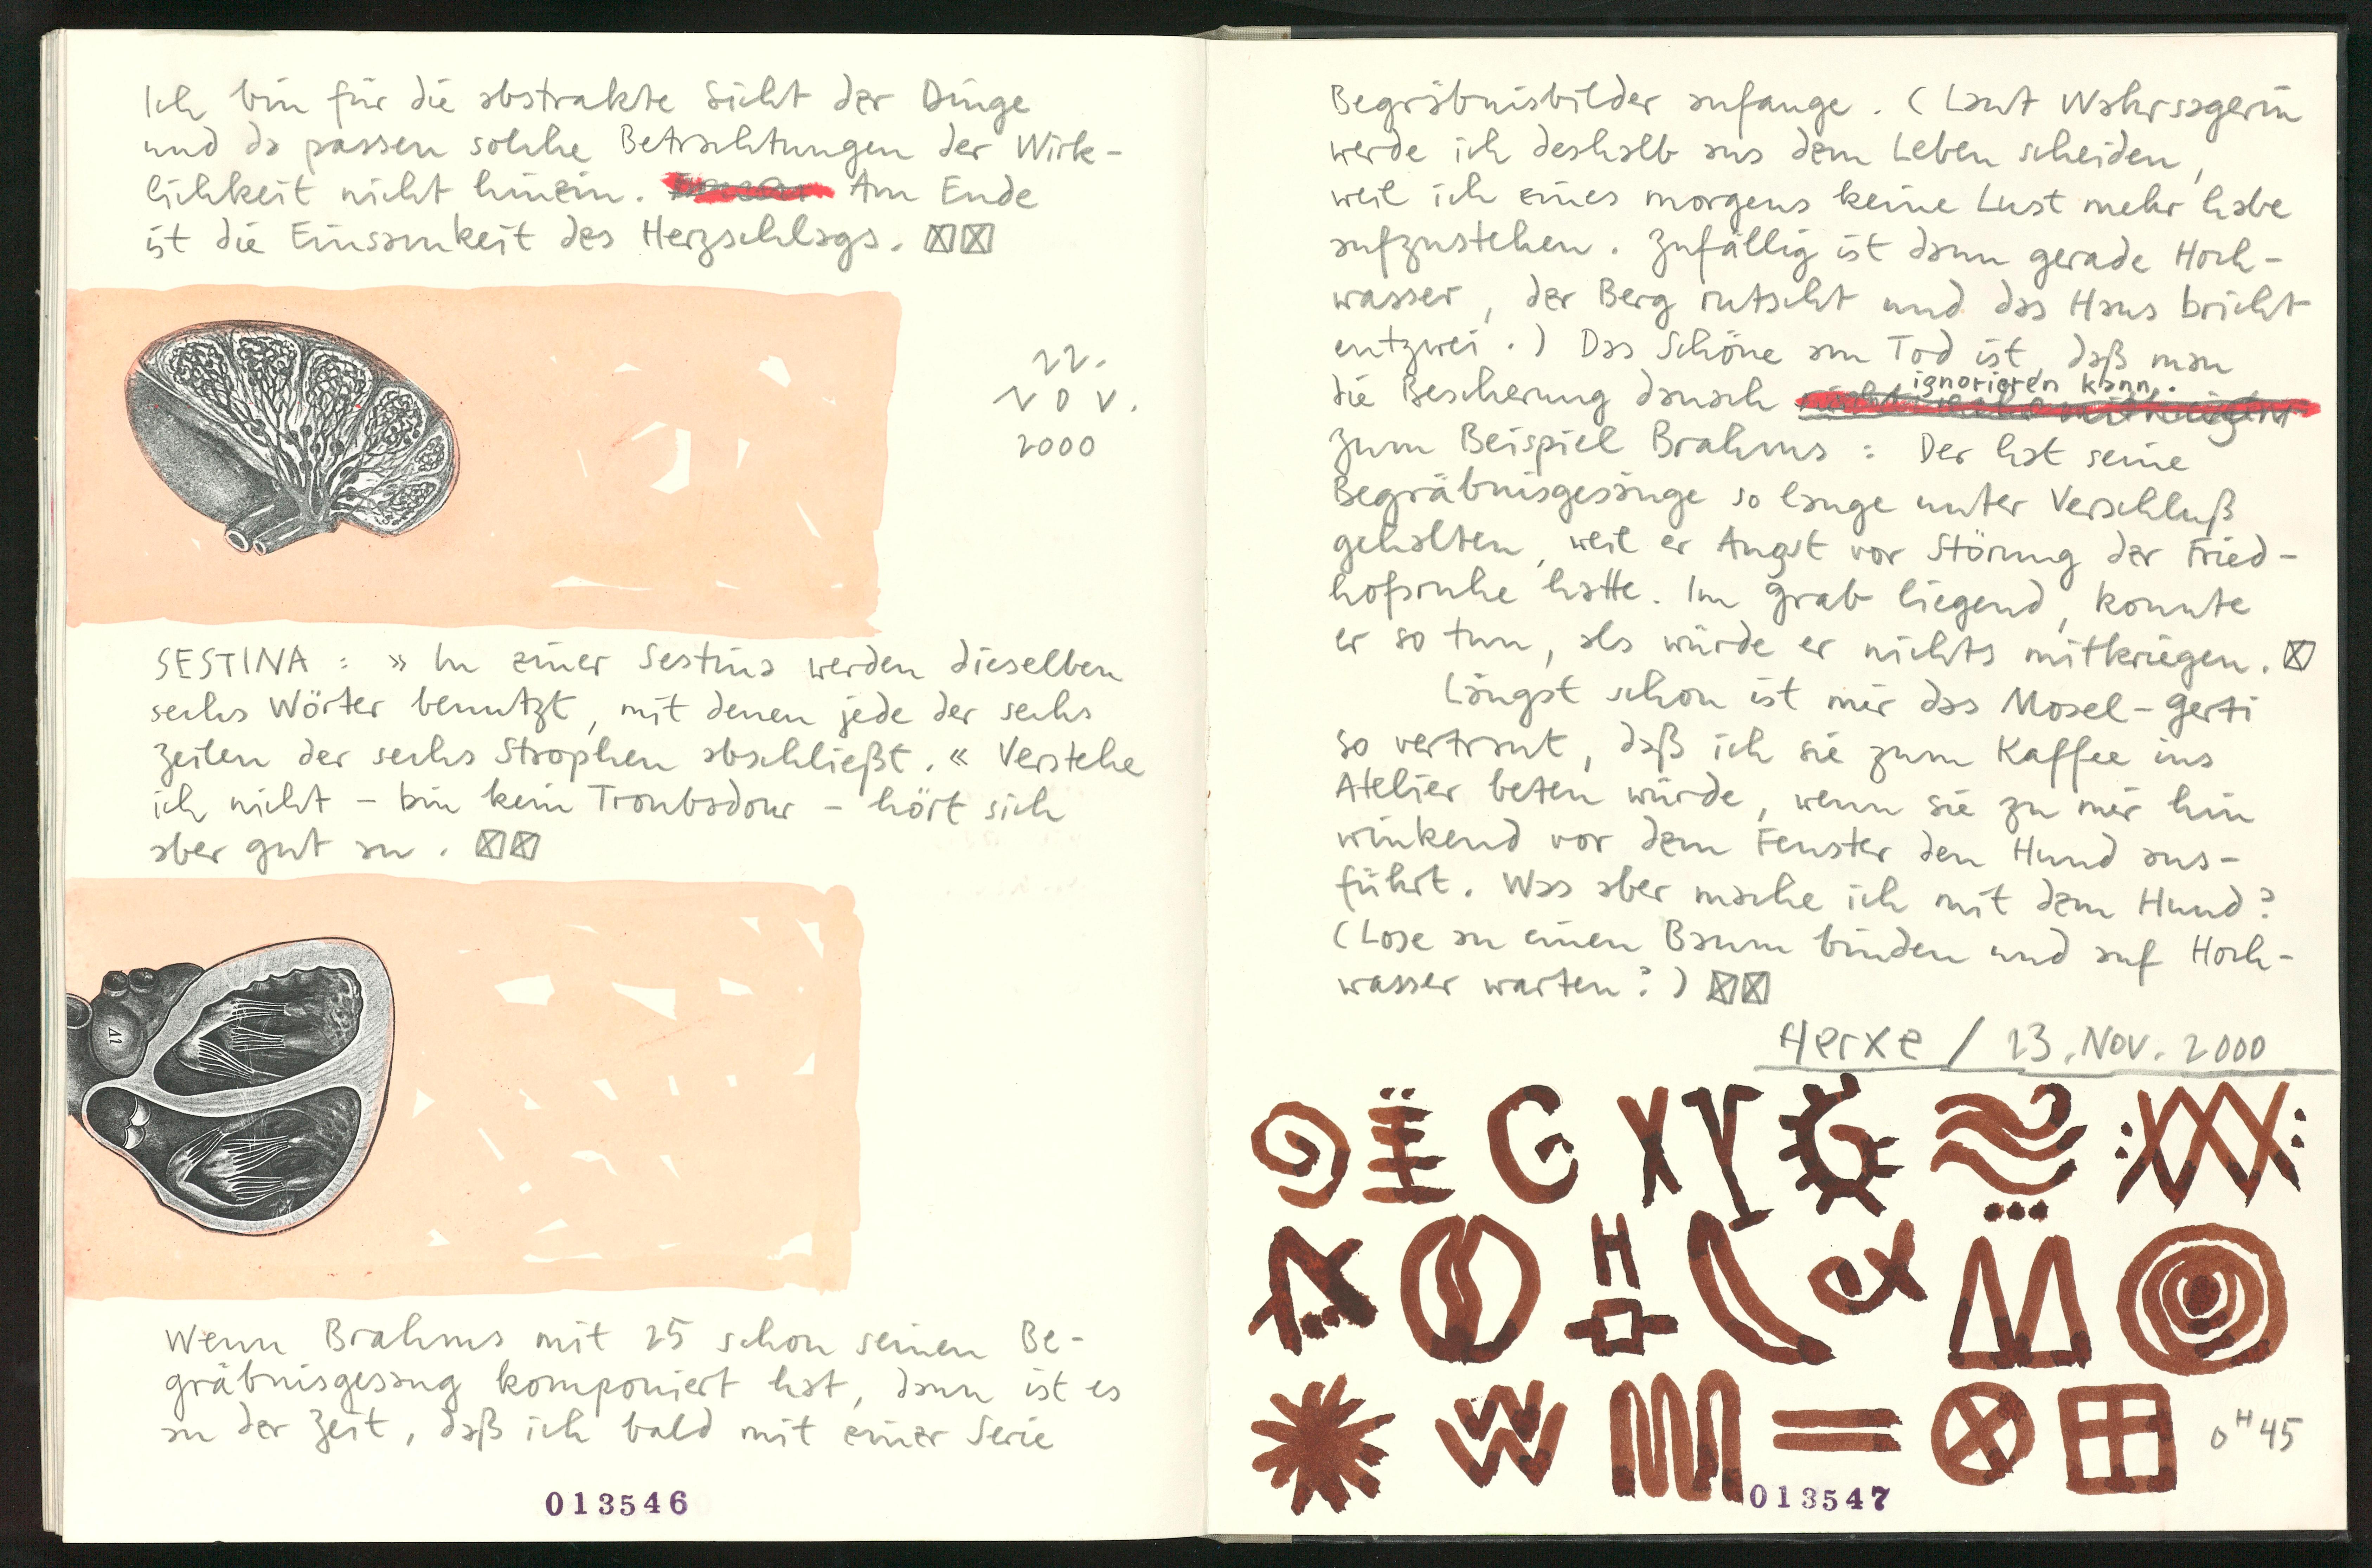 Ich bin für die abstrakte Sicht der Dinge
und da passen solche Betrachtungen der Wirk-
lichkeit nicht hinein. Am Ende
ist die Einsamkeit des Herzschlags. ☒☒
22.
NOV.
2000
SESTINA : » In einer Sestina werden dieselben
sechs Wörter benutzt, mit denen jede der sechs
Zeilen der sechs Strophen abschließt. « Verstehe
ich nicht – bin kein Troubadour – hört sich
aber gut an. ☒☒
A1
Wenn Brahms mit 25 schon seinen Be-
gräbnisgesang komponiert hat, dann ist es
an der Zeit, daß ich bald mit einer Serie
013546
Begräbnisbilder anfange. (Laut Wahrsagerin
werde ich deshalb aus dem Leben scheiden,
weil ich eines morgens keine Lust mehr habe
aufzustehen. Zufällig ist dann gerade Hoch-
wasser, der Berg rutscht und das Haus bricht
entzwei.) Das Schöne am Tod ist, daß man
die Bescherung danach ignorieren kann.
Zum Beispiel Brahms : Der hat seine
Begräbnisgesänge so lange unter Verschluß
gehalten, weil er Angst vor Störung der Fried-
hofsruhe hatte. Im Grab liegend, konnte
er so tun, als würde er nichts mitkriegen. ☒
Längst schon ist mir das Mosel-Gerti
so vertraut, daß ich sie zum Kaffee ins
Atelier beten würde, wenn sie zu mir hin
winkend vor dem Fenster den Hund aus-
führt. Was aber mache ich mit dem Hund?
(Lose an einen Baum binden und auf Hoch-
wasser warten?) ☒☒
Herxe / 23. Nov. 2000
0H45
013547